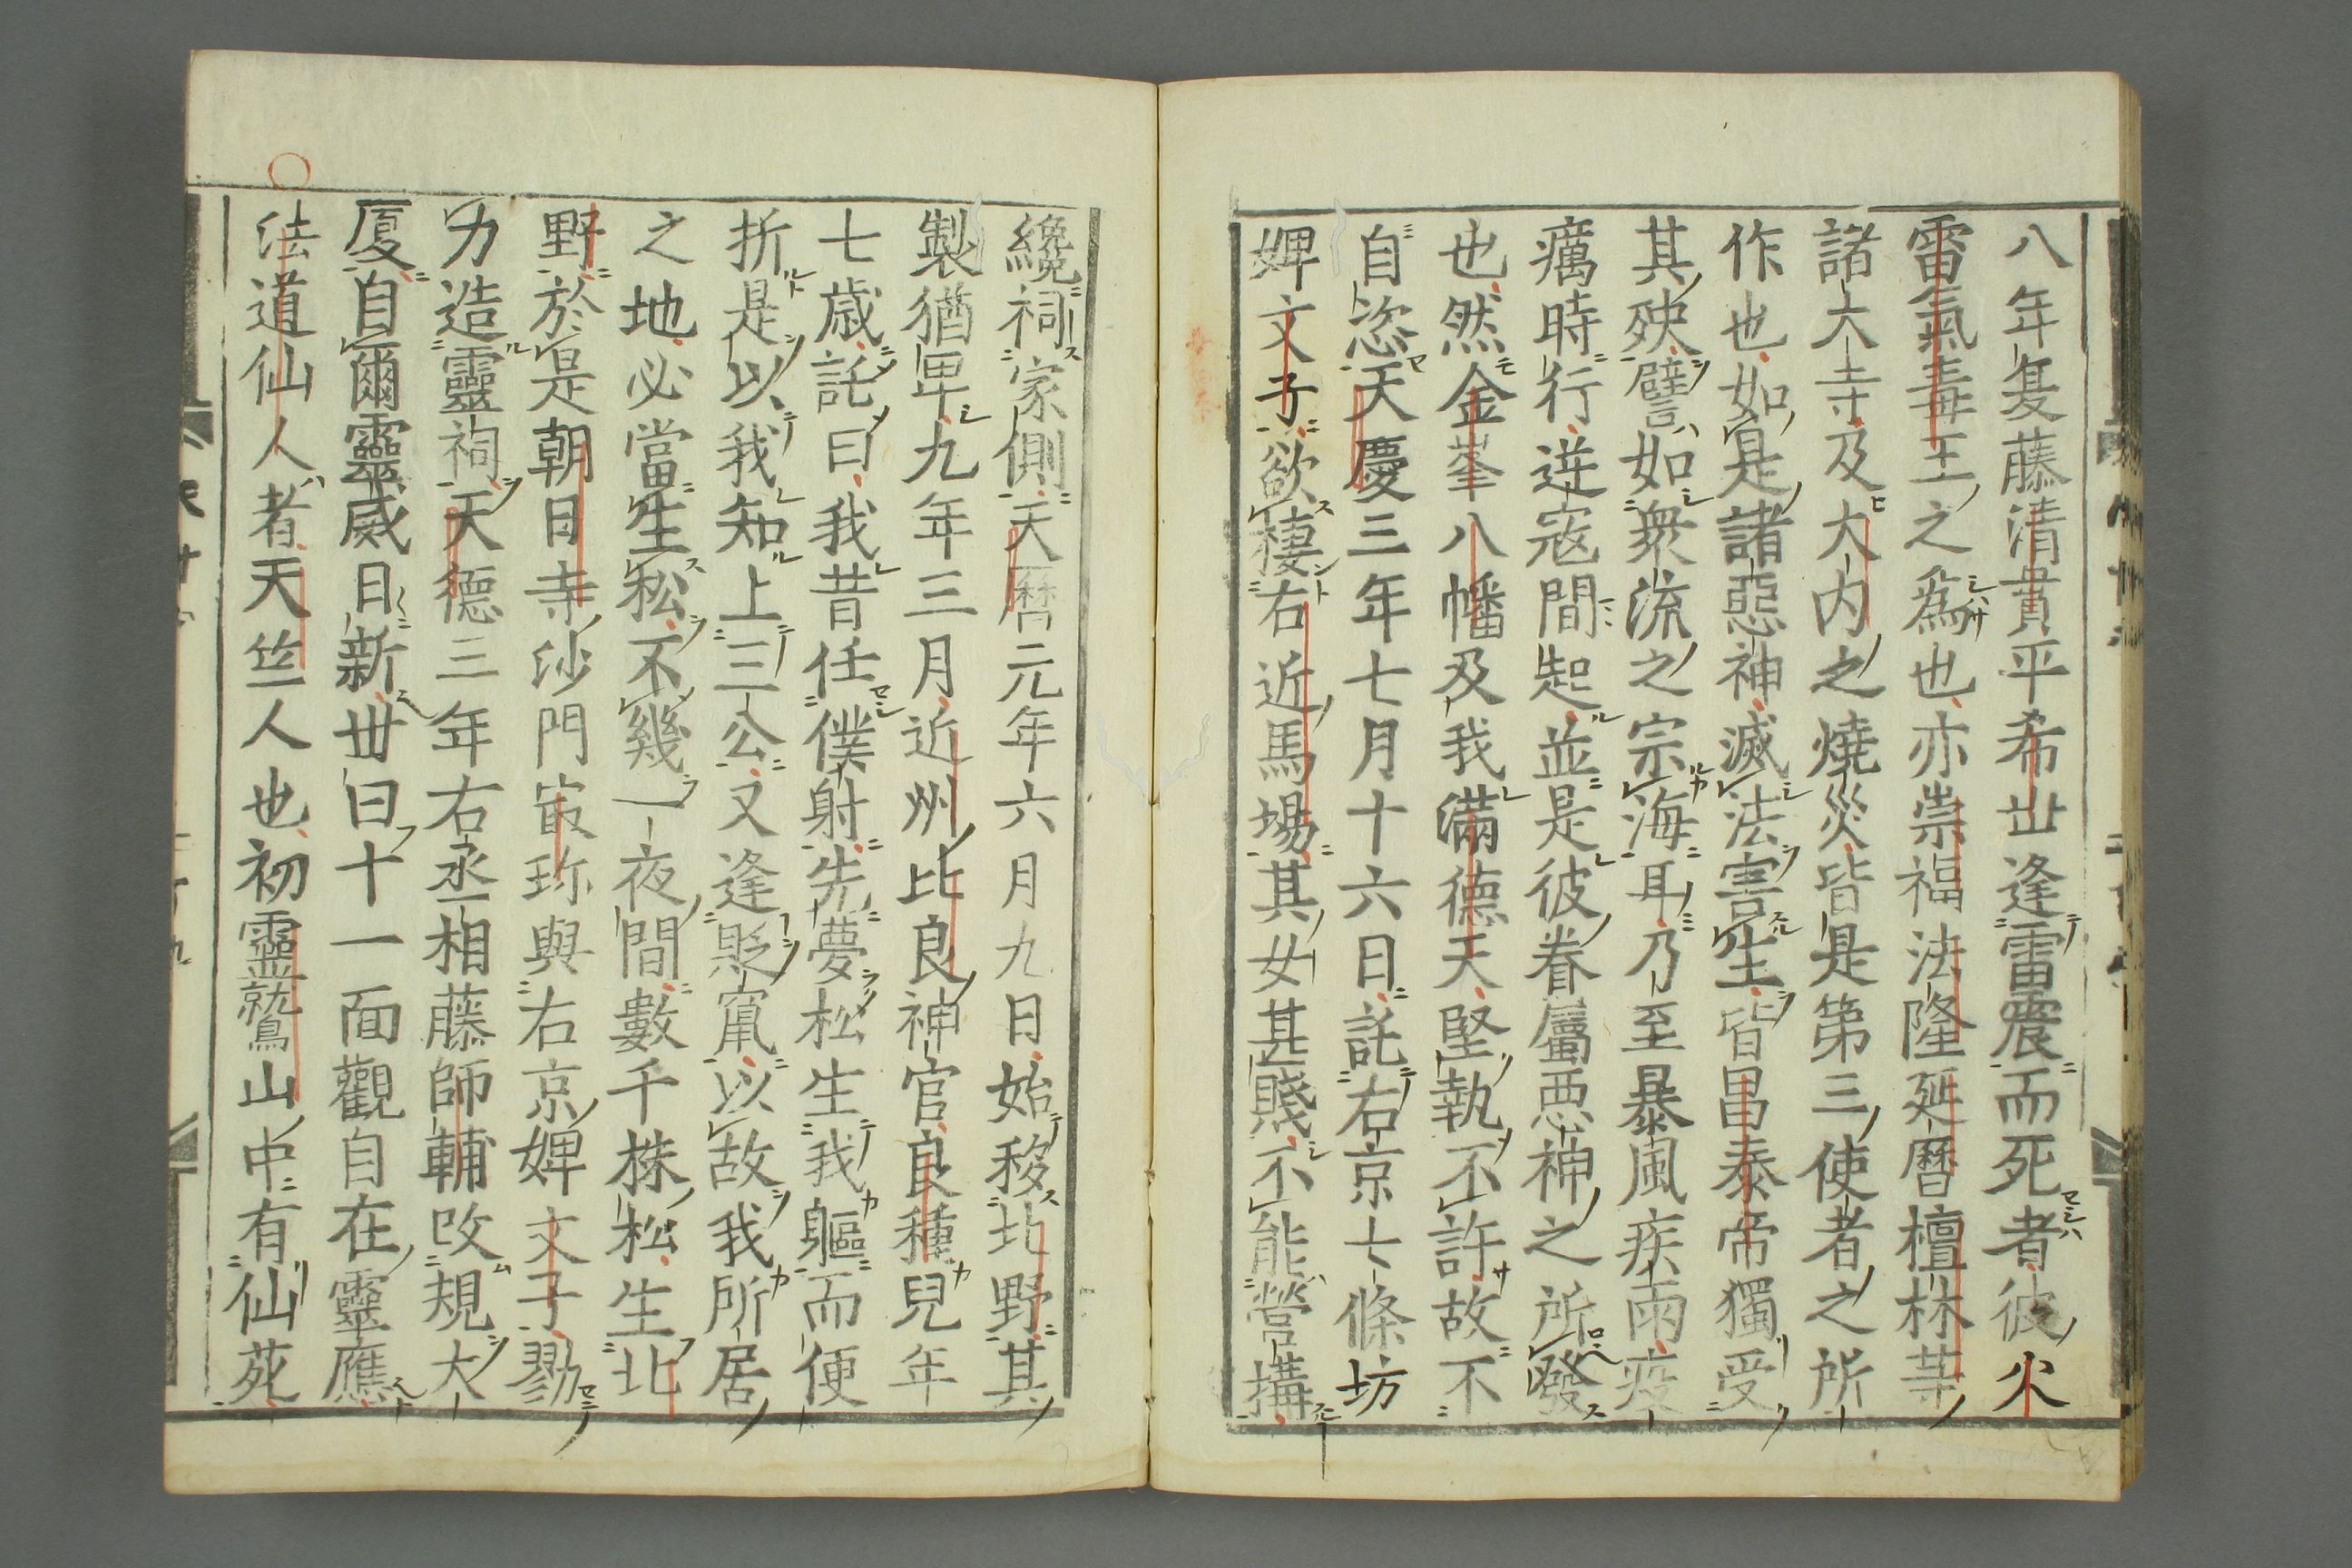 八年夏藤清貫平希世逢雷震而死者彼火
雷氣毒王之為也亦崇福法隆延暦檀林等
諸大寺及大内之燒災皆是第三使者之所
作也如是諸惡神滅法害生皆昌泰帝獨受
其殃譬如衆流之宗海耳乃至暴風疾雨疫
癘時行逆寇間起並是彼眷屬悪神之所發
也然金峯八幡及我滿德天堅執不許故不
自恣天慶三年七月十六日託右京七條坊
婢文子欲棲右近馬場其女甚賤不能營搆
纔祠家側天暦元年六月九日始移北野其
製猶卑九年三月近州比良神官良種兒年
七歳託曰我昔任僕射先夢松生我軀而便
折是以我知上三公又逢貶竄以故我所居
之地必當生松不幾一夜間數千株松生北
野於是朝日寺沙門㝡珍與右京婢文子勠
力造靈祠天德三年右丞相藤師輔改規大
厦自爾靈威日新世曰十一面觀自在靈應
法道仙人者天竺人也初靈鷲山中有仙苑